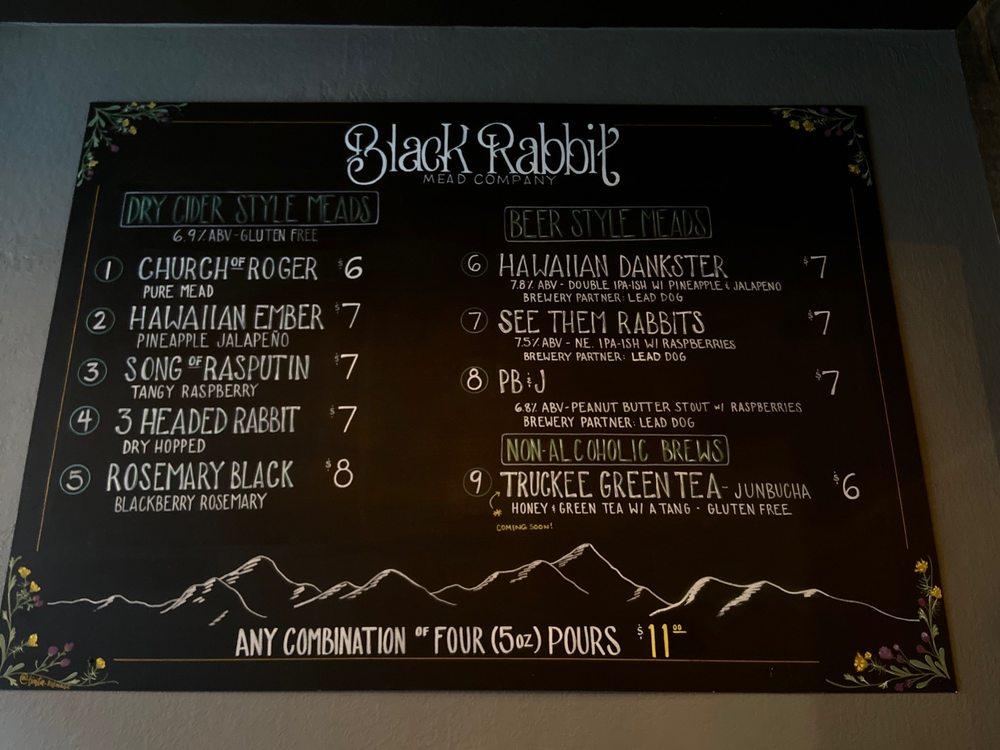 Black Rabbit
MEAD COMPANY
DRY CIDER STYLE MEADS
6.9% ABV-GLUTEN FREE
1 CHURCH OF ROGER $6
PURE MEAD
2 HAWAIIAN EMBER $7
PINEAPPLE JALAPEÑO
3 SONG OF RASPUTIN $7
TANGY RASPBERRY
4 3 HEADED RABBIT $7
DRY HOPPED
5 ROSEMARY BLACK $8
BLACKBERRY ROSEMARY
BEER STYLE MEADS
6 HAWAIIAN DANKSTER $7
7.8% ABV - DOUBLE IPA-ISH W/ PINEAPPLE & JALAPENO
BREWERY PARTNER: LEAD DOG
7 SEE THEM RABBITS $7
7.5% ABV - NE. IPA-ISH W/ RASPBERRIES
BREWERY PARTNER: LEAD DOG
8 PB&J $7
6.8% ABV-PEANUT BUTTER STOUT W/ RASPBERRIES
BREWERY PARTNER: LEAD DOG
NON-ALCOHOLIC BREWS
9 TRUCKEE GREEN TEA - JUNBUCHA $6
HONEY & GREEN TEA W/ A TANG - GLUTEN FREE
* COMING SOON!
ANY COMBINATION OF FOUR (5oz) POURS $11.00